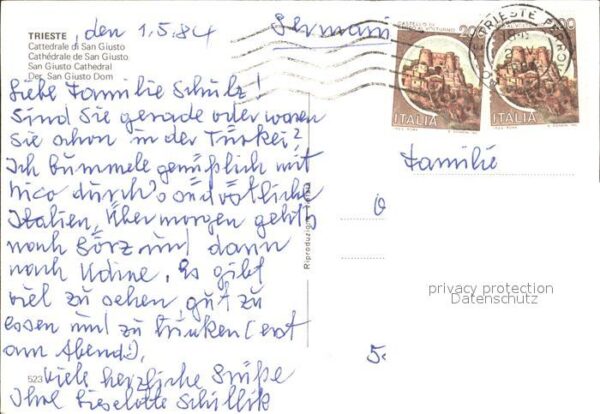 TRIESTE , den 1.5.84 Germania
Cattedrale di San Giusto
Cathédrale de San Giusto
San Giusto Cathedral
Der San Giusto Dom
Liebe Familie Schulz!
Sind Sie gerade oder waren
Sie schon in der Türkei?
Ich bummele genüßlich mit
Nico durch's nordöstliche
Italien, Übermorgen geht's
nach Görz und dann
nach Udine. Es gibt
viel zu sehen, gut zu
essen und zu trinken (erst
am Abend!).
523
Viele herzliche Grüße
Ihre Lieselotte
CASTELLO DI
200
ITALIA
200
ITALIA
TRIESTE
Familie
privacy protection
Datenschutz
5.